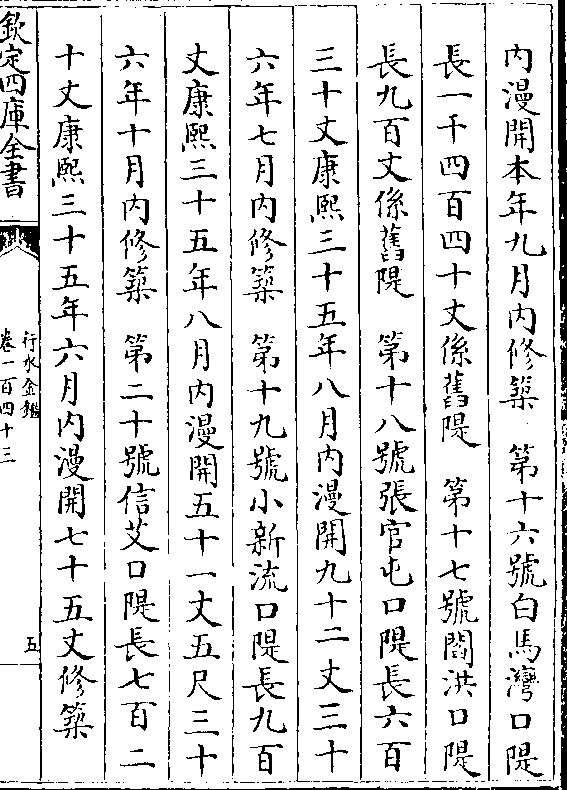 内漫開本年九月内修築　第十六號白馬灣口隄
長一千四百四十丈係舊隄　第十七號閻洪口隄
長九百丈係舊隄　第十八號張官屯口隄長六百
三十丈康熙三十五年八月内漫開九十二丈三十
六年七月内修築　第十九號小新流口隄長九百
丈康熙三十五年八月内漫開五十一丈五尺三十
六年十月内修築　第二十號信艾口隄長七百二
十丈康熙三十五年六月内漫開七十五丈修築
欽定四庫全書
行水金鑑
卷一百四十三
五